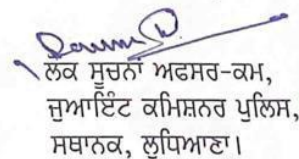 ਲੋਕ ਸੂਚਨਾਂ ਅਫਸਰ-ਕਮ,
ਜੁਆਇੰਟ ਕਮਿਸ਼ਨਰ ਪੁਲਿਸ,
ਸਥਾਨਕ, ਲੁਧਿਆਣਾ।